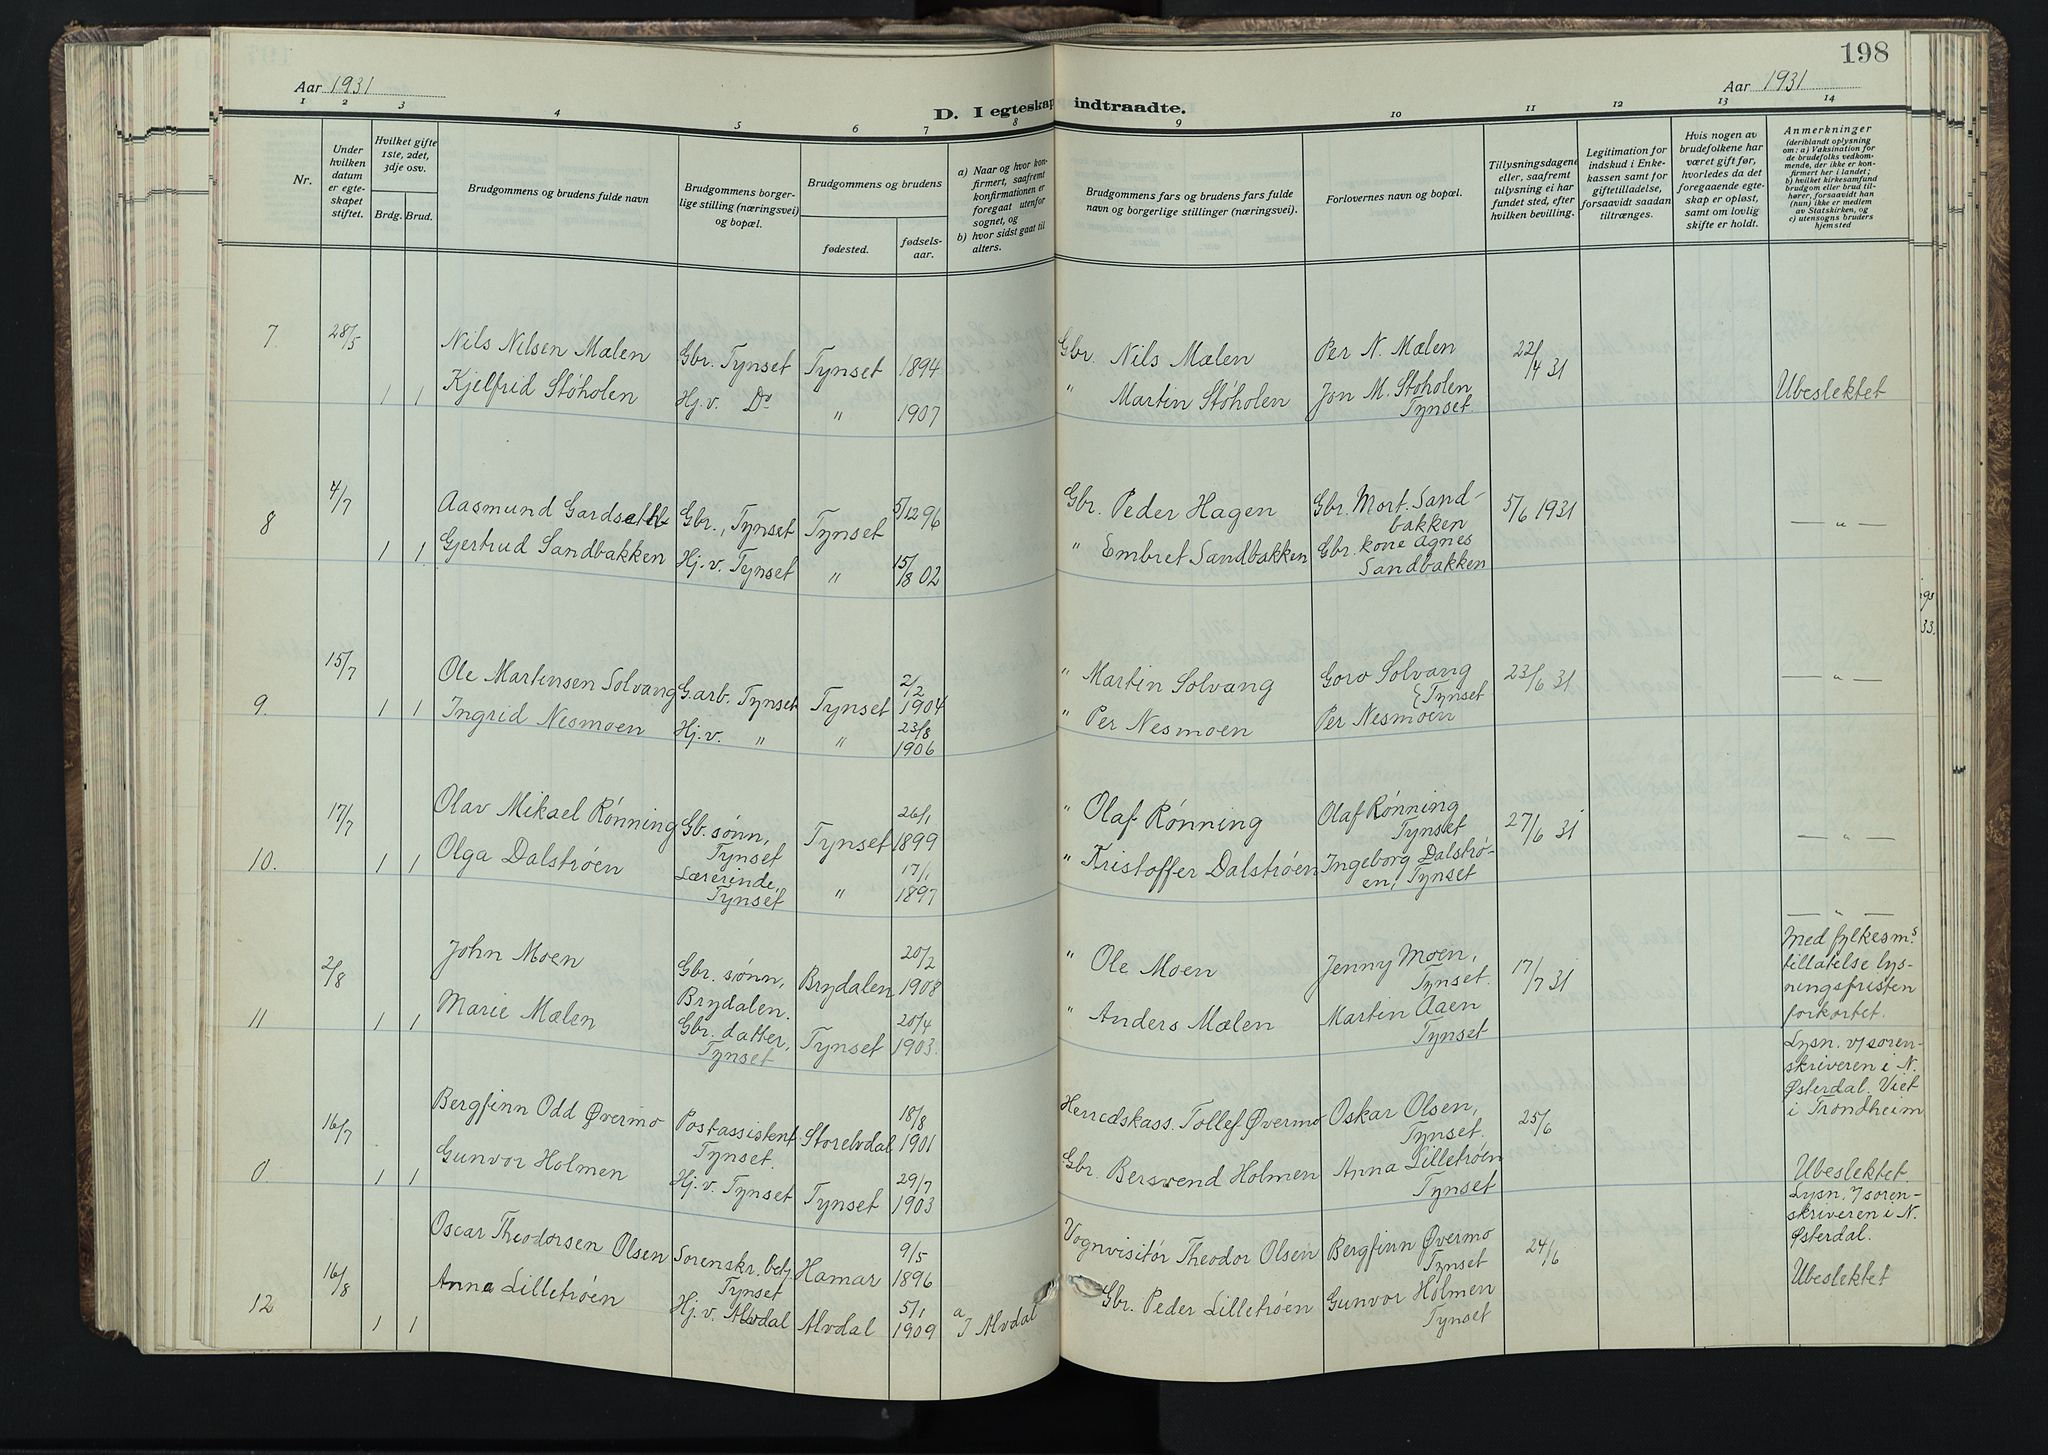 197
198
Aar 1931
Aar 1931
D. I egteskap indtraadte.
1 2 3 4 5 6 7 8 9 10 11 12 13 14
Nr.
Under hvilken datum er egteskapet stiftet.
Hvilket gifte 1ste, 2det, 3dje osv.
Brdg. Brud.
Brudgommens og brudens fulde navn
Brudgommens borgerlige stilling (næringsvei) og bopæl.
Brudgommens og brudens
fødested.
fødselsaar.
a) Naar og hvor konfirmert, saafremt konfirmationen er foregaat utenfor sognet, og
b) hvor sidst gaat til alters.
Brudgommens fars og brudens fars fulde navn og borgerlige stillinger (næringsvei).
Forlovernes navn og bopæl.
Tillysningsdagene eller, saafremt tillysning ei har fundet sted, efter hvilken bevilling.
Legitimation for indskud i Enkekassen samt for giftetilladelse, forsaavidt saadan tiltrænges.
Hvis nogen av brudefolkene har været gift før, hvorledes da det foregaaende egteskap er opløst, samt om lovlig skifte er holdt.
Anmerkninger (deriblandt oplysning om: a) Vaksination for de brudefolks vedkommende, der ikke er konfirmert her i landet; b) hvilket kirkesamfund brudgom eller brud tilhører, forsaavidt han (hun) ikke er medlem av Statskirken, og c) utensogns bruders hjemsted
7 28/5 Nils Nilsen Mælen Gbr. Tynset Tynset 1894 Gbr. Nils Mælen Per N. Mælen 22/4 31
1 1 Kjelfrid Støholen Hj.v. Do " 1907 " Martin Støholen Jon M. Støholen Tynset. Ubeslektet
8 4/7 Aasmund Gardseth Gbr., Tynset Tynset 5/12 96 Gbr. Peder Hagen Gbr. Mort. Sandbakken 5/6 1931 — " —
1 1 Gjertrud Sandbakken Hj.v. Tynset " 15/8 02 " Embret Sandbakken Gbr. kone Agnes Sandbakken
9. 15/7 Ole Martinsen Solvang G.arb. Tynset Tynset 2/2 1904 " Martin Solvang Goro Solvang Tynset 23/6 31 — " —
1 1 Ingrid Nesmoen Hj.v. " " 23/8 1906 " Per Nesmoen Per Nesmoen
10. 17/7 Olav Mikael Rønning Gb. sønn, Tynset Tynset 26/1 1899 " Olaf Rønning Olaf Rønning Tynset 27/6 31 — " —
1 1 Olga Dalstrøen Lærerinde, Tynset " 17/1 1897 " Kristoffer Dalstrøen Ingeborg Dalstrøen, Tynset
11 2/8 John Moen Gbr. sønn, Brydalen. Brydalen 20/2 1908 " Ole Moen Jenny Moen, Tynset. 17/7 31 — " — Med fylkesm.s tillatelse lysningsfristen forkortet.
1 1 Marie Mælen Gbr. datter, Tynset Tynset 20/4 1903. " Anders Mælen Martin Aaen Tynset
0. 16/7 Bergfinn Odd Øvermo Postassistent Tynset. Storelvdal 18/8 1901 Herredskass. Tollef Øvermo Oskar Olsen, Tynset. 25/6 Lysn. v/ sorenskriveren i N. Østerdal. Viet i Trondheim
1 1 Gunvor Holmen Hj.v. Tynset Tynset 29/7 1903 Gbr. Bersvend Holmen Anna Lilletrøen Tynset Ubeslektet.
12 16/8 Oscar Theodorsen Olsen Sorenskr. betj Tynset Hamar 9/5 1896 Vognvisitør Theodor Olsen Bergfinn Øvermo Tynset 24/6 Lysn. / sorenskriveren i N. Østerdal.
1 1 Anna Lilletrøen Hj.v. Alvdal Alvdal 5/1 1909 a I Alvdal Gbr. Peder Lilletrøen Gunvor Holmen Tynset Ubeslektet
33.